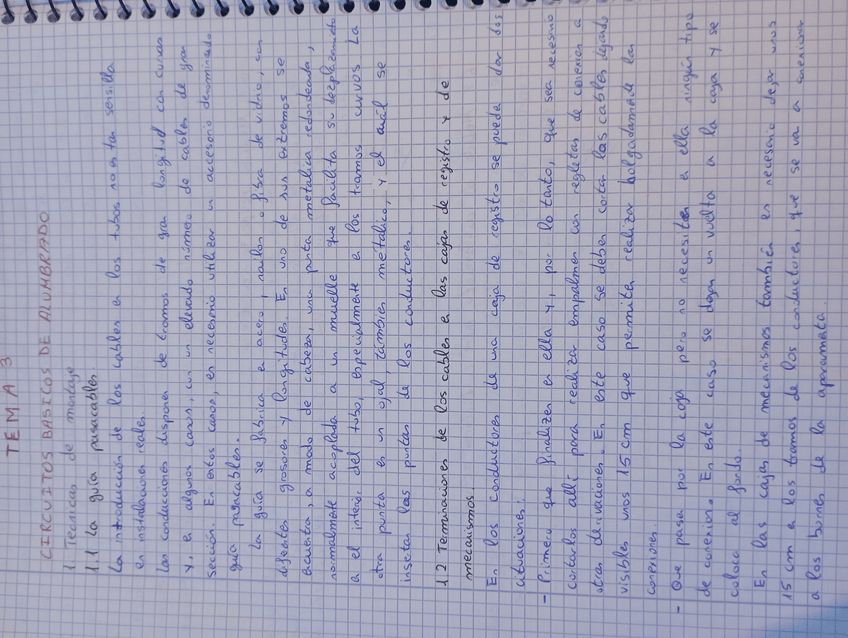 TEMA 3
CIRCUITOS BASICOS DE ALUMBRADO
1 Tecnicas de montaje
1.1 La guía pasacables
La introducción de los cables a los tubos no es tan sencilla
en instalaciones reales.
Las conducciones disponen de tramos de gran longitud con curvas
y, en algunos casos, con un elevado número de cables de gran
sección. En estos casos, es necesario utilizar un accesorio denominado
guía pasacables.
La guía se fabrica en acero, nailon o fibra de vidrio, con
diferentes grosores y longitudes. En uno de sus extremos se
encuentra, a modo de cabeza, una punta metalica redondeada,
normalmente acoplada a un muelle que facilita su desplazamiento
en el interior del tubo, especialmente en los tramos curvos. La
otra punta es un ojal, tambien metálico, y el cual se
insertan las puntas de los conductores.
1.2 Terminaciones de los cables en las cajas de registro y de
mecanismos.
En los conductores de una caja de registro se pueden dar dos
situaciones:
- Primero que finalizen en ella y, por lo tanto, que sea necesario
cortarlos allí para realizar empalmes con regletas de conexión a
otras derivaciones. En este caso se deben cortar los cables dejando
visibles unos 15 cm que permita realizar holgadamente las
conexiones.
- Que pasen por la caja pero no necesiten en ella ningún tipo
de conexion. En este caso se dejan un vuelta a la caja y se
coloca al fondo.
En las cajas de mecanismos también es necesario dejar unos
15 cm en los tramos de los conductores, que se van a conexionar
a los bornes de la aparamenta.